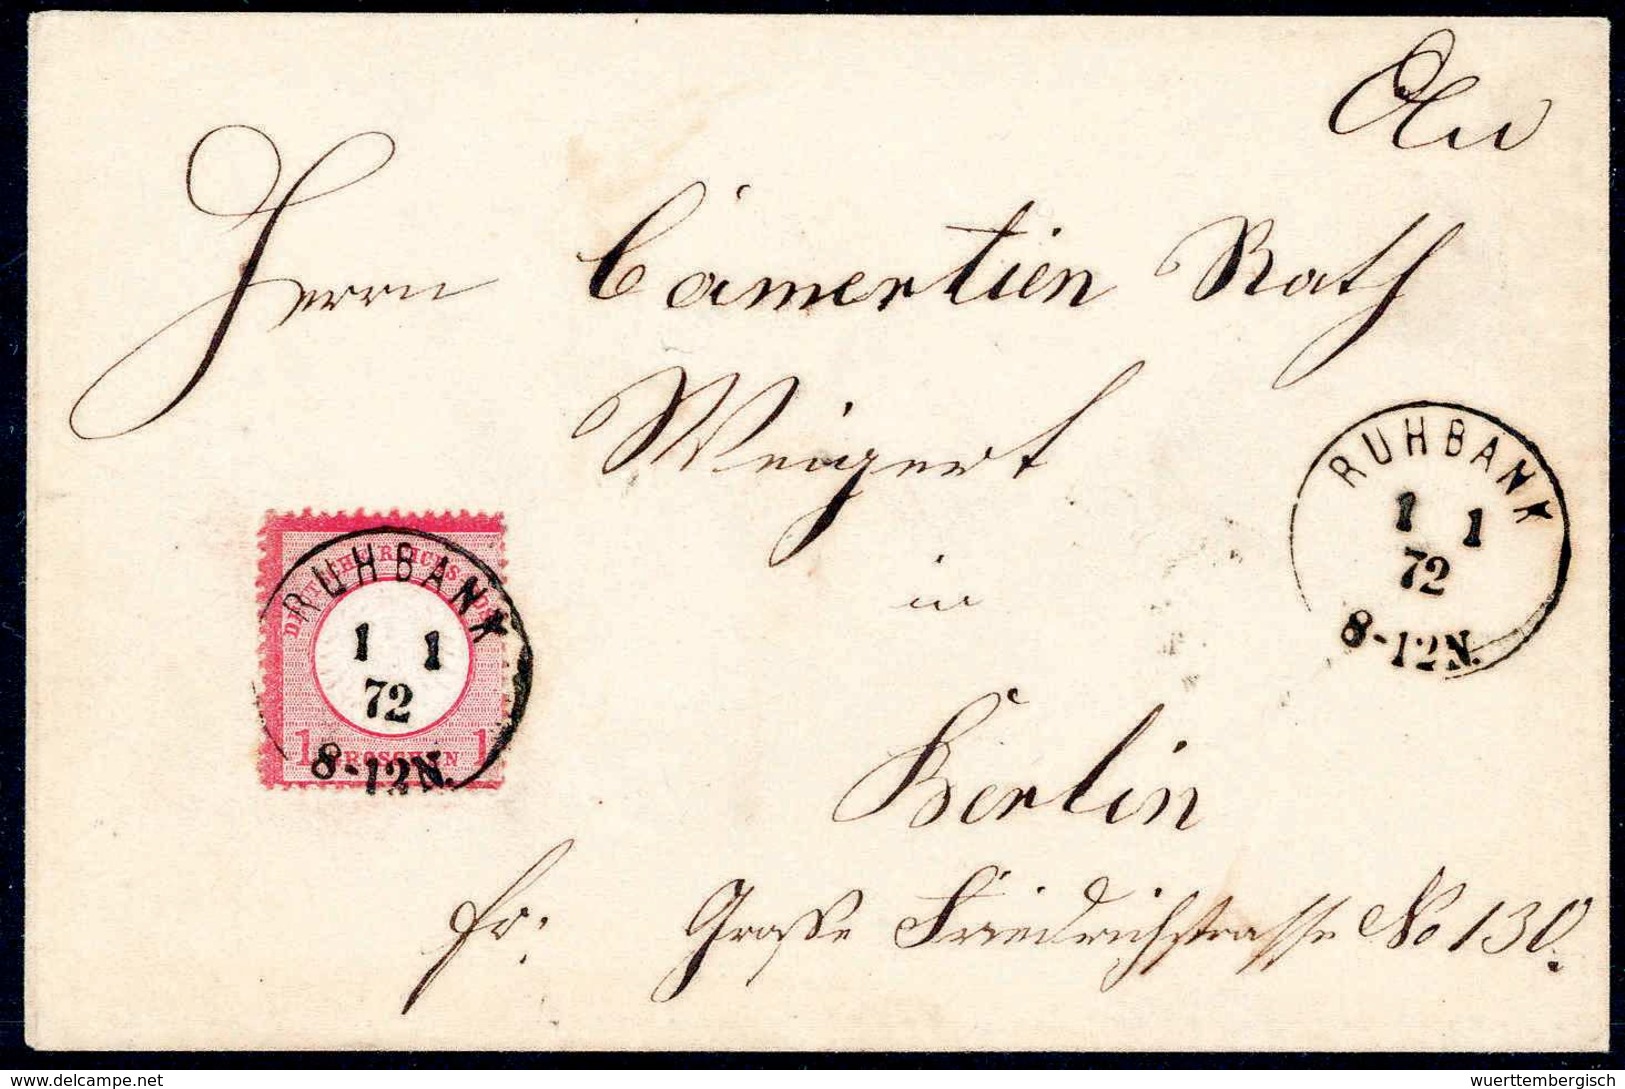 An
Herrn Cámertien Rath
Weigert
in
Berlin
fr: Große Friedrichstrasse No 130.
RUHBANK
1 1
72
8-12N.
DEUTSCHE REICHS-POST
1 GROSCHEN 1
RUHBANK
1 1
72
8-12N.
© philasearch.com
wuerttembergisch